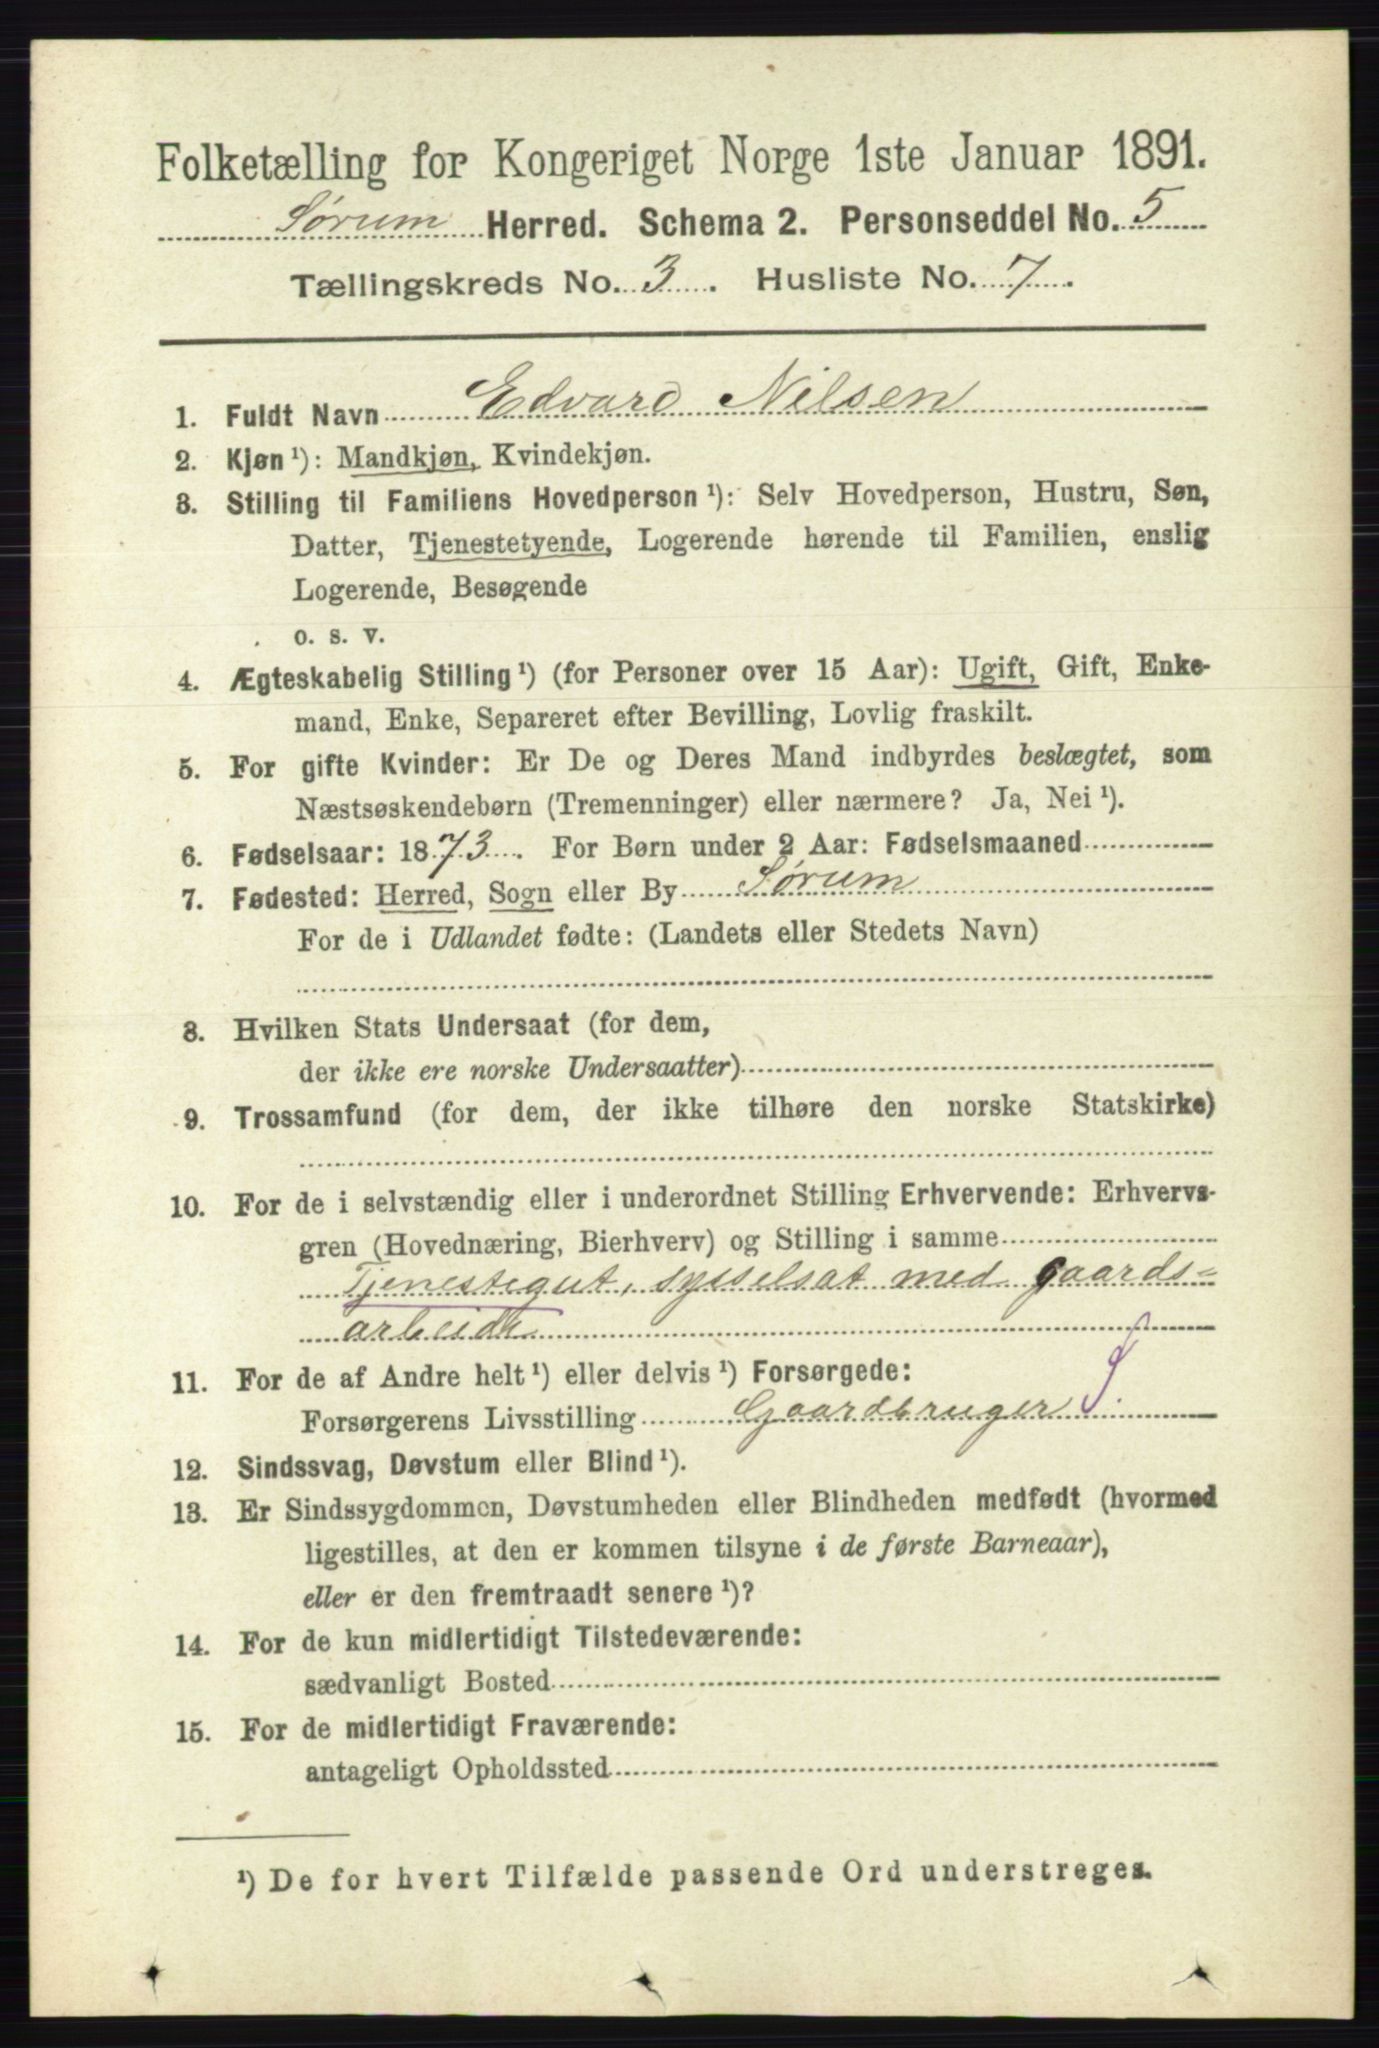 Folketælling for Kongeriget Norge 1ste Januar 1891.
Sørum Herred. Schema 2. Personseddel No. 5
Tællingskreds No. 3. Husliste No. 7.
1. Fuldt Navn Edvard Nilsen
2. Kjøn ¹): Mandkjøn, Kvindekjøn.
3. Stilling til Familiens Hovedperson ¹): Selv Hovedperson, Hustru, Søn,
Datter, Tjenestetyende, Logerende hørende til Familien, enslig
Logerende, Besøgende
o. s. v.
4. Ægteskabelig Stilling ¹) (for Personer over 15 Aar): Ugift, Gift, Enke-
mand, Enke, Separeret efter Bevilling, Lovlig fraskilt.
5. For gifte Kvinder: Er De og Deres Mand indbyrdes beslægtet, som
Næstsøskendebørn (Tremenninger) eller nærmere? Ja, Nei ¹).
6. Fødselsaar: 1873. For Børn under 2 Aar: Fødselsmaaned
7. Fødested: Herred, Sogn eller By Sørum
For de i Udlandet fødte: (Landets eller Stedets Navn)
8. Hvilken Stats Undersaat (for dem,
der ikke ere norske Undersaatter)
9. Trossamfund (for dem, der ikke tilhøre den norske Statskirke)
10. For de i selvstændig eller i underordnet Stilling Erhvervende: Erhvervs-
gren (Hovednæring, Bierhverv) og Stilling i samme
Tjenestegut, sysselsat med gaards-
arbeide
11. For de af Andre helt ¹) eller delvis ¹) Forsørgede:
Forsørgerens Livsstilling Gaardbruger S.
12. Sindssvag, Døvstum eller Blind ¹).
13. Er Sindssygdommen, Døvstumheden eller Blindheden medfødt (hvormed
ligestilles, at den er kommen tilsyne i de første Barneaar),
eller er den fremtraadt senere ¹)?
14. For de kun midlertidigt Tilstedeværende:
sædvanligt Bosted
15. For de midlertidigt Fraværende:
antageligt Opholdssted
¹) De for hvert Tilfælde passende Ord understreges.